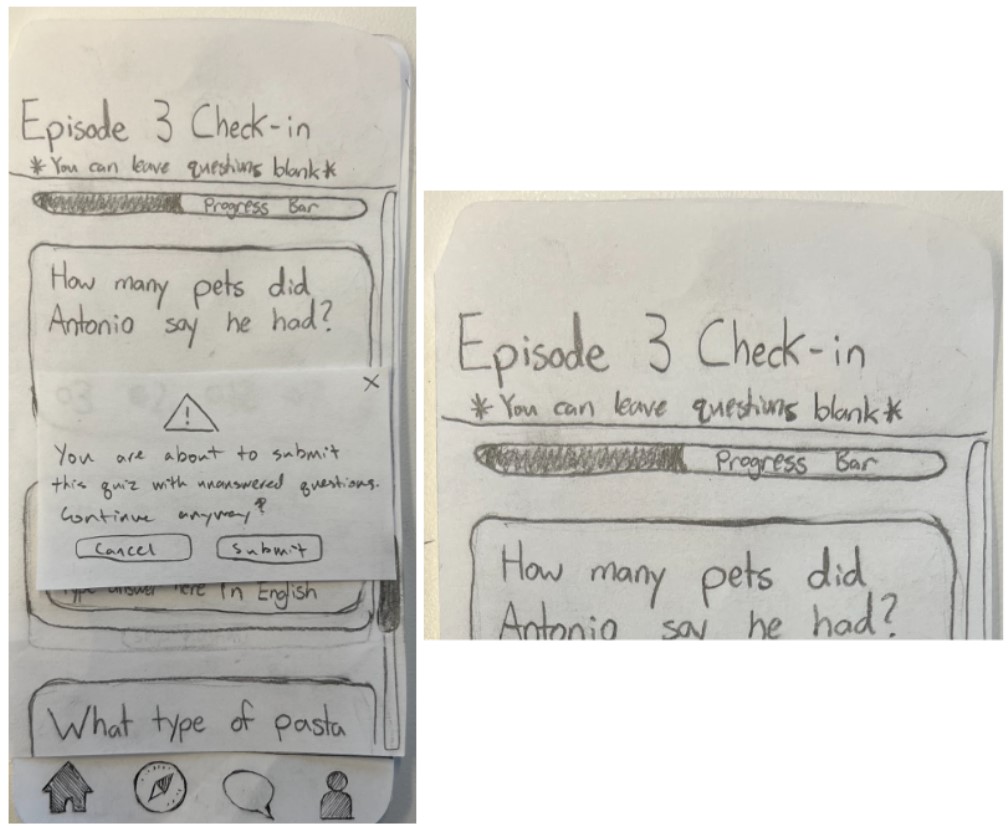 Episode 3 Check-in
*You can leave questions blank*
Progress Bar
How many pets did
Antonio say he had?
X
!
You are about to submit
this quiz with unanswered questions.
Continue anyway?
Cancel
Submit
Type answer here in English
What type of pasta
Episode 3 Check-in
*You can leave questions blank*
Progress Bar
How many pets did
Antonio say he had?